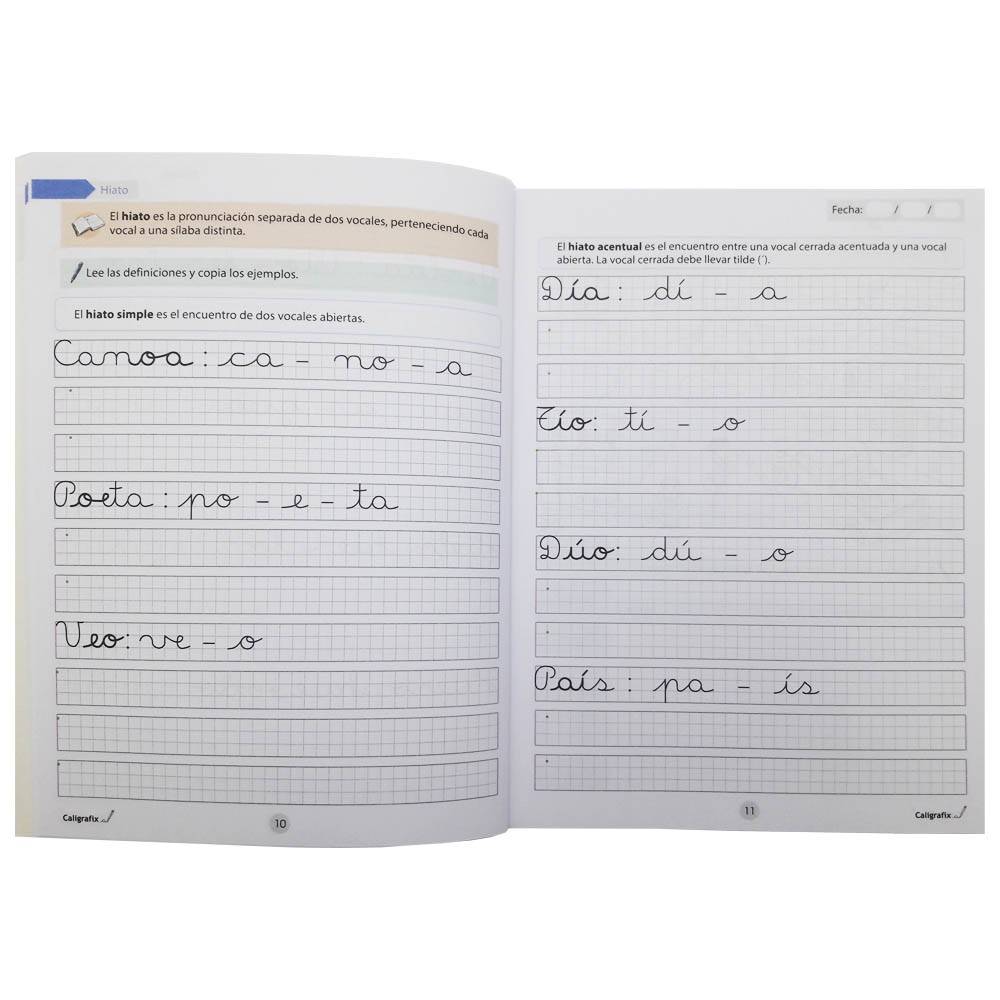 Hiato
El hiato es la pronunciación separada de dos vocales, perteneciendo cada
vocal a una sílaba distinta.
Lee las definiciones y copia los ejemplos.
El hiato simple es el encuentro de dos vocales abiertas.
Canoa : ca - no - a
Poeta : po - e - ta
Veo: ve - o
Caligrafix
10
Fecha: / /
El hiato acentual es el encuentro entre una vocal cerrada acentuada y una vocal
abierta. La vocal cerrada debe llevar tilde (´).
Día : dí - a
Tío: tí - o
Dúo: dú - o
País : pa - ís
11
Caligrafix